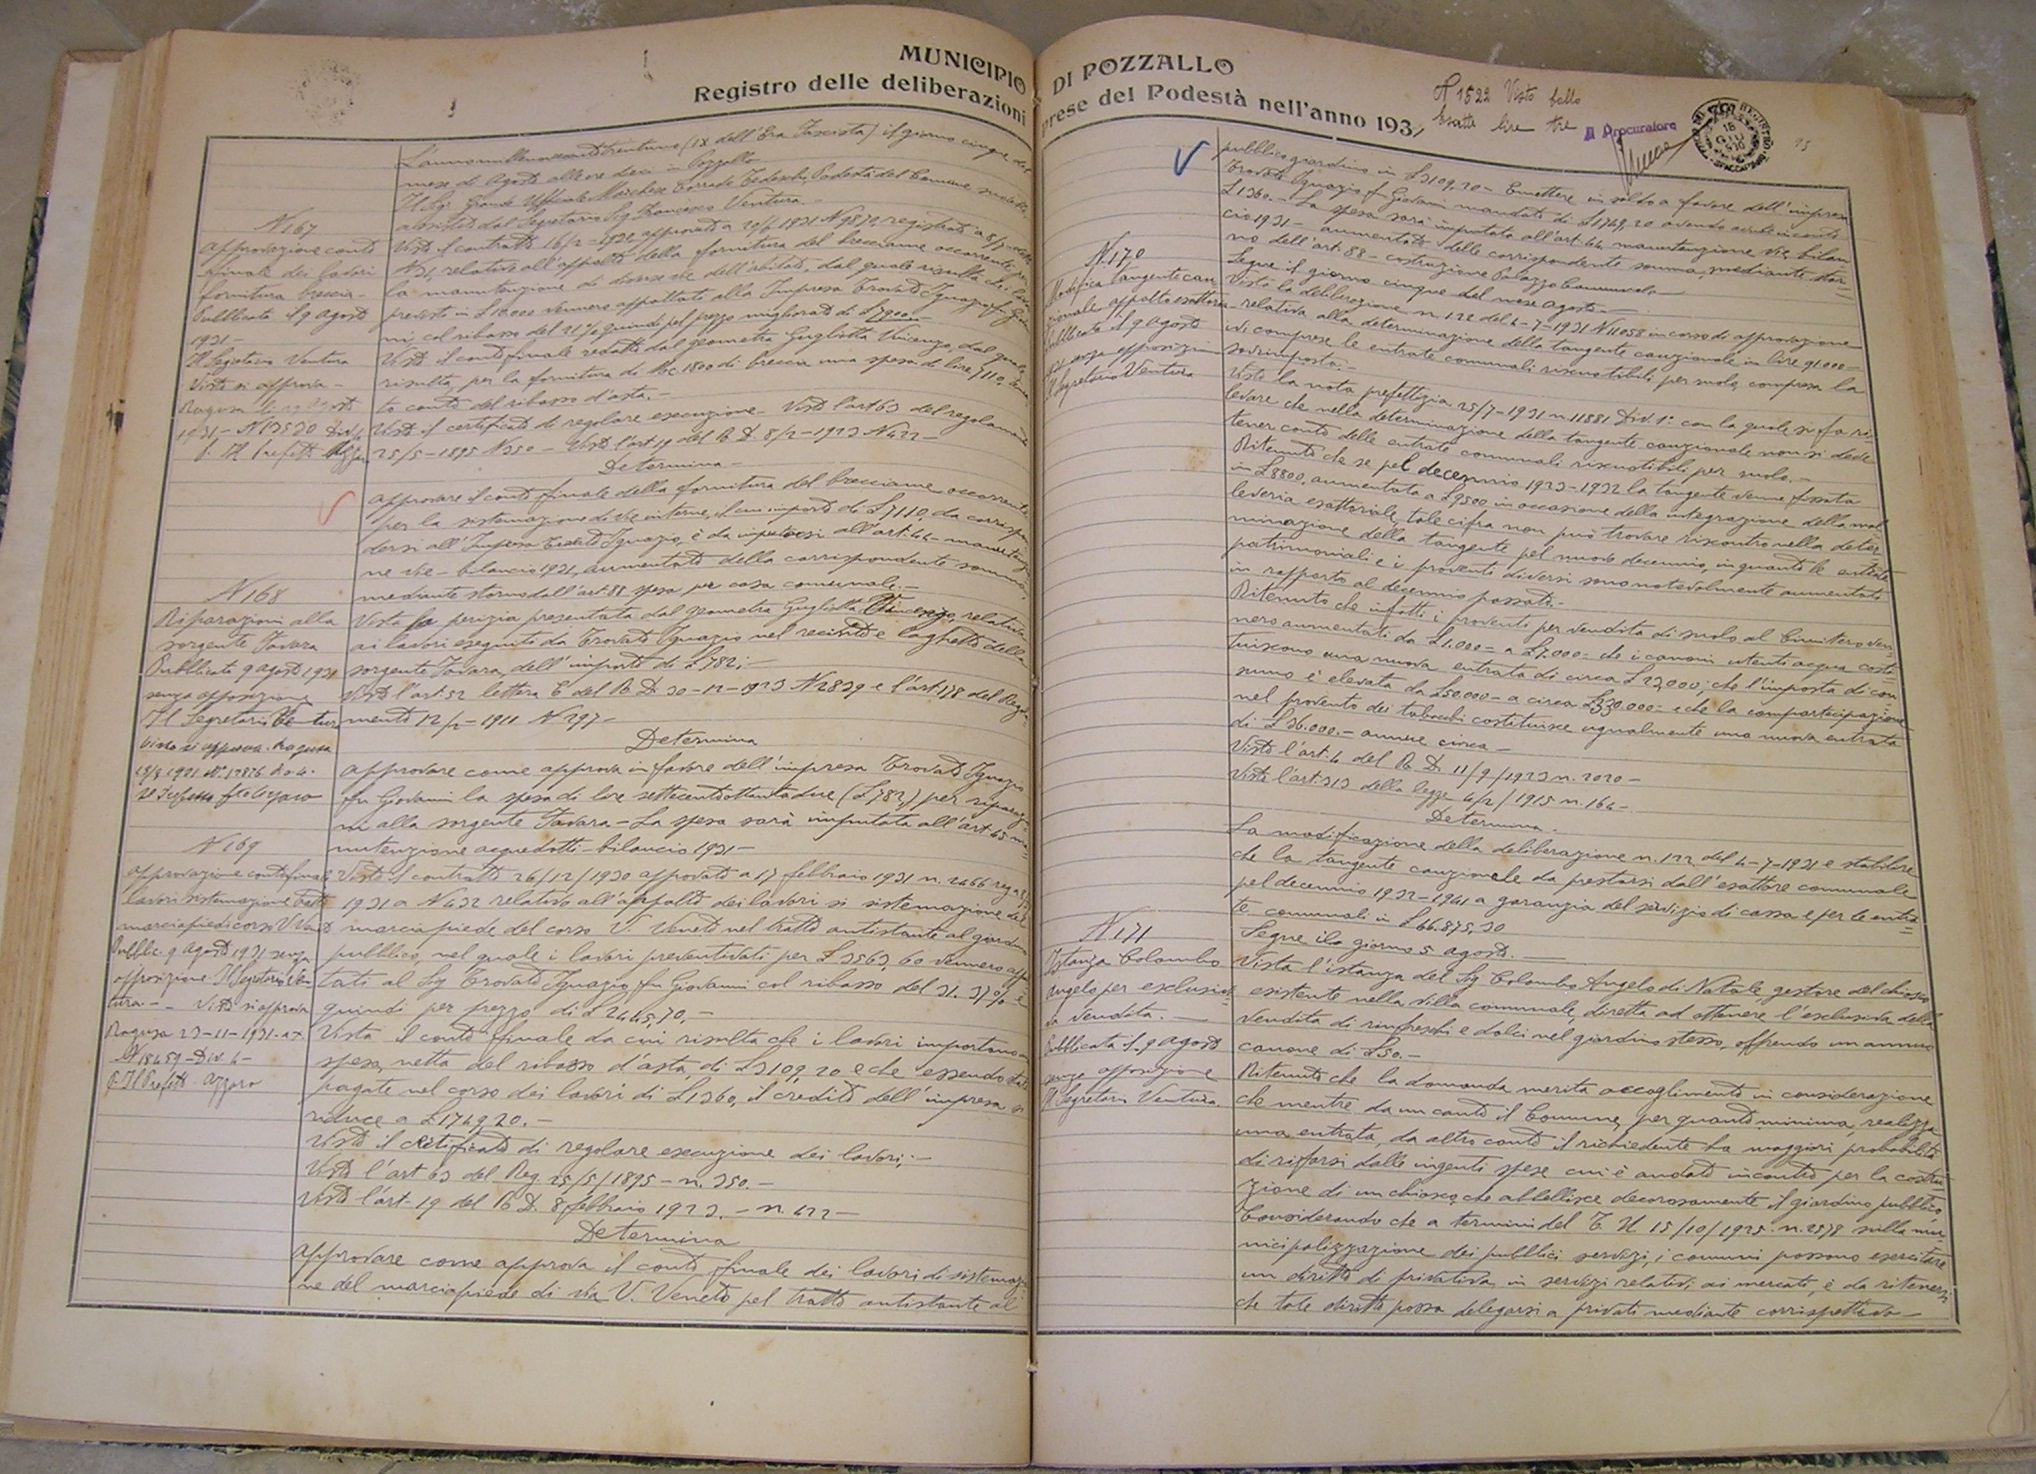 MUNICIPIO DI POZZALLO
Registro delle deliberazioni prese del Podestà nell'anno 193
N 1522 Visto bollo
Esatte lire tre
Il Procuratore
L'anno millenovecentotrentuno (IX dell'Era Fascista) il giorno cinque del
mese di Agosto alle ore dieci in Pozzallo
Il Sig. Grande Ufficiale Marchese Corrado Tedeschi, Podestà del Comune suddetto,
assistito dal Segretario Sig. Francesco Ventura.-
N 167
Approvazione conto
finale dei lavori
fornitura breccia-
Pubblicata il 9 agosto
1931-
Il Segretario Ventura
Visto si approva-
Ragusa li agosto
1931- N 13530 Div.
p. Il Prefetto
Visto il contratto approvato a registrato a
relativo all'appalto della fornitura del brecciame occorrente per
la manutenzione di diverse vie dell'abitato, dal quale risulta che i lavori
previsti in £ 10000 vennero appaltati alla Impresa Trovato Ignazio fu Giovan
ni, col ribasso del 21% quindi pel prezzo migliorato di £ 7900.-
Visto il conto finale redatto dal geometra Gugliotta Vincenzo, dal quale
risulta, per la fornitura di Mc. 1800 di breccia una spesa di lire 7110, tenu
to conto del ribasso d'asta.-
Visto il certificato di regolare esecuzione- Visto l'art 63 del regolamento
25/5-1895 N 350- Visto l'art 19 del R D 8/2-1923 N 422-
Determina-
approvare il conto finale della fornitura del brecciame occorrente
per la sistemazione di vie interne, il cui importo di £ 7110, da corrispon
dersi all'Impresa Trovato Ignazio, è da imputarsi all'art. 44- manutenzio
ne vie- bilancio 1931, aumentato della corrispondente somma,
mediante storno dall'art. 88 spesa per casa comunale.-
N 168
Riparazioni alla
sorgente Favara
Pubblicata 9 agosto 1931
senza opposizione
Il Segretario Ventura
Visto si approva. Ragusa
Vista la perizia presentata dal geometra Gugliotta Vincenzo, relativa
ai lavori eseguiti da Trovato Ignazio nel recinto e laghetto della
sorgente Favara, dell'importo di £ 782;-
Visto l'art. 52 lettera C del R. D. 30-12-1923 N 2839 e l'art. 178 del Rego
mento 12/2-1911 N 297-
Determina
approvare come approva in favore dell'impresa Trovato Ignazio
fu Giovanni la spesa di lire settecentottantadue (£ 782,) per riparazio
ni alla sorgente Favara- La spesa sarà imputata all'art. 45 ma
nutenzione acquedotti- bilancio 1931-
N 169
approvazione conto finale
lavori sistemazione tratto
marciapiedi corso V Veneto
Pubblic. 9 Agosto 1931 senza
opposizione Il Segretario Ven
tura.- Visto si approva
Ragusa 23-11-1931-
N 18459- Div. 4-
p. Il Prefetto Azzaro
Visto il contratto 26/12/1930 approvato a 17 febbraio 1931 n. 2466
1931 a N 432 relativo all'appalto dei lavori di sistemazione del
marciapiede del corso V. Veneto nel tratto antistante al giardino
pubblico, nel quale i lavori preventivati per £ 3563,60 vennero appal
tati al Sig Trovato Ignazio fu Giovanni col ribasso del 31.37% e
quindi per prezzo di £ 2445,70,-
Visto il conto finale da cui risulta che i lavori importano
spesa, netta del ribasso d'asta, di £ 3109,20 e che essendo state
pagate nel corso dei lavori di £ 1360, il credito dell'impresa si
riduce a £ 1749,20.-
Visto il certificato di regolare esecuzione dei lavori;-
Visto l'art 63 del Reg. 25/5/1895- n. 350.-
Visto l'art. 19 del R D. 8 febbraio 1923.- n. 422-
Determina
approvare come approva il conto finale dei lavori di sistemazio
ne del marciapiede di via V. Veneto pel tratto antistante al
pubblico giardino in £ 3109,20- Emettere in saldo a favore dell'impresa
Trovato Ignazio fu Giovanni mandato di £ 1749,20 avendo avuto in conto
£ 1360.- La spesa sarà imputata all'art. 44 manutenzione vie, bilan
cio 1931- aumentato della corrispondente somma, mediante stor=
no dell'art. 88- costruzione Palazzo Comunale-
N. 170
Modifica tangente cau
zionale appalto esattoria
Pubblicata il 9 Agosto
1931 senza opposizioni
Il Segretario Ventura
Segue il giorno cinque del mese agosto-
Vista la deliberazione n. 122 del 4-7-1931 N 11058 in corso di approvazione
relativa alla determinazione della tangente cauzionale in lire 91000-
ivi comprese le entrate comunali riscuotibili per ruolo, compresa la
sovrimposta.-
Vista la nota prefettizia 25/7-1931 n. 11881 Div. 1ª con la quale si fa ri=
levare che nella determinazione della tangente cauzionale non si deve
tener conto delle entrate comunali riscuotibili per ruolo.-
Ritenuto che se pel decennio 1923-1932 la tangente venne fissata
in £ 8800, aumentata a £ 9500 in occasione della integrazione della mal
leveria esattoriale, tale cifra non può trovare riscontro nella deter=
minazione della tangente pel nuovo decennio, in quanto le entrate
patrimoniali e i proventi diversi sono notevolmente aumentati
in rapporto al decennio passato.-
Ritenuto che infatti i proventi per vendita di suolo al Cimitero ven=
nero aumentati da £ 1.000- a £ 7.000- che i canoni utenti acqua costi=
tuiscono una nuova entrata di circa £ 23,000; che l'imposta di con=
sumo è elevata da £ 50.000- a circa £ 330.000- e che la compartecipazione
nel provento dei tabacchi costituisce ugualmente una nuova entrata
di £ 36.000.- annue circa-
Visto l'art. 4 del R. D. 11/9/1923 n. 2020-
Visto l'art. 313 della legge 4/2/1915 n. 164-
Determina-
La modificazione della deliberazione n. 122 del 4-7-1931 e stabilire
che la tangente cauzionale da prestarsi dall'esattore comunale
pel decennio 1932-1941 a garanzia del servizio di cassa e per le entra=
te comunali in £ 66.875,30
N. 171
Istanza Colombo
Angelo per esclusiva
vendita.-
Pubblicata il 9 agosto
senza opposizione
Il Segretario Ventura.
Segue il giorno 5 agosto.-
Vista l'istanza del Sig Colombo Angelo di Natale, gestore del chiosco
esistente nella villa comunale, diretta ad ottenere l'esclusiva della
vendita di rinfreschi e dolci nel giardino stesso, offrendo un annuo
canone di £ 50.-
Ritenuto che la domanda merita accoglimento in considerazione
che mentre da un canto il Comune, per quanto minima, realizza
una entrata, da altro canto il richiedente ha maggiori probabilità
di rifarsi dalle ingenti spese cui è andato incontro per la costru=
zione di un chiosco, che abbellisce decorosamente il giardino pubblico
Considerando che a termini del T. U. 15/10/1925- n. 2578 sulla mu=
nicipalizzazione dei pubblici servizi, i comuni possono esercitare
un diritto di privativa, in servizi relativi ai mercati, è da ritenersi
che tale diritto possa delegarsi a privati mediante corrispettivo-